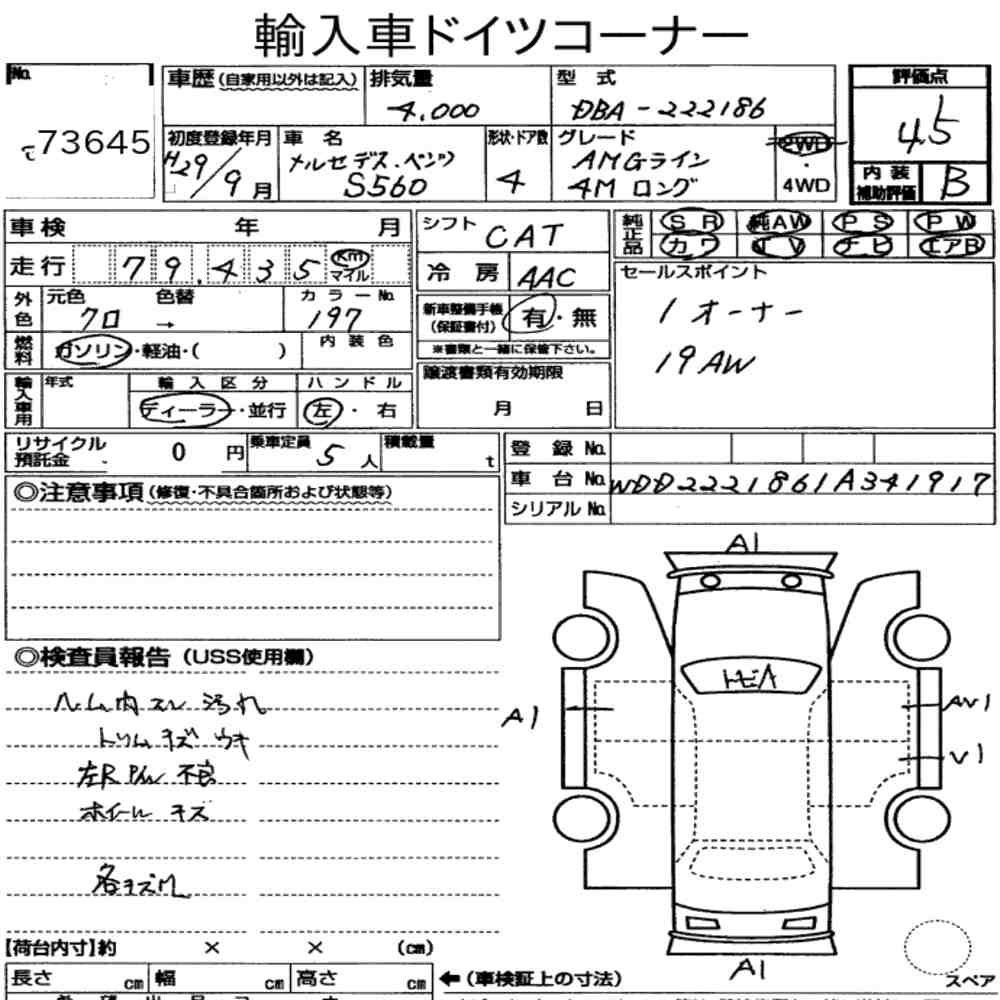 輸入車ドイツコーナー
No.
73645
車歴(自家用以外は記入)
排気量
4,000
型式
DBA-222186
評価点
4.5
初度登録年月
H29/9月
車名
メルセデス・ベンツ
S560
形状・ドア数
4
グレード
AMGライン
4M ロング
2WD
・
4WD
内装
補助評価
B
車検 年 月
シフト
CAT
純正品
SR 純AW PS PW
カワ TV ナビ エアB
走行 79,435 Km
マイル
冷房
AAC
セールスポイント
1オーナー
19AW
外色
元色 色替 カラーNo.
クロ → 197
新車整備手帳
(保証書付)
有・無
※書類と一緒に保管下さい。
燃料
ガソリン・軽油・( )
内装色
輸入車用
年式
輸入区分
ディーラー・並行
ハンドル
左・右
譲渡書類有効期限
月 日
リサイクル
預託金
0 円
乗車定員
5人
積載量
t
登録No.
車台No. WDD2221861A341917
シリアルNo.
◎注意事項(修復・不具合箇所および状態等)
◎検査員報告(USS使用欄)
ヘム内スレ汚れ
トリムキズ ウキ
左R P/W 不良
ホイール キズ
各キズ凹
A1
トビA
A1
AV1
V1
A1
【荷台内寸】約 × × (cm)
長さ cm 幅 cm 高さ cm
←(車検証上の寸法)
スペア